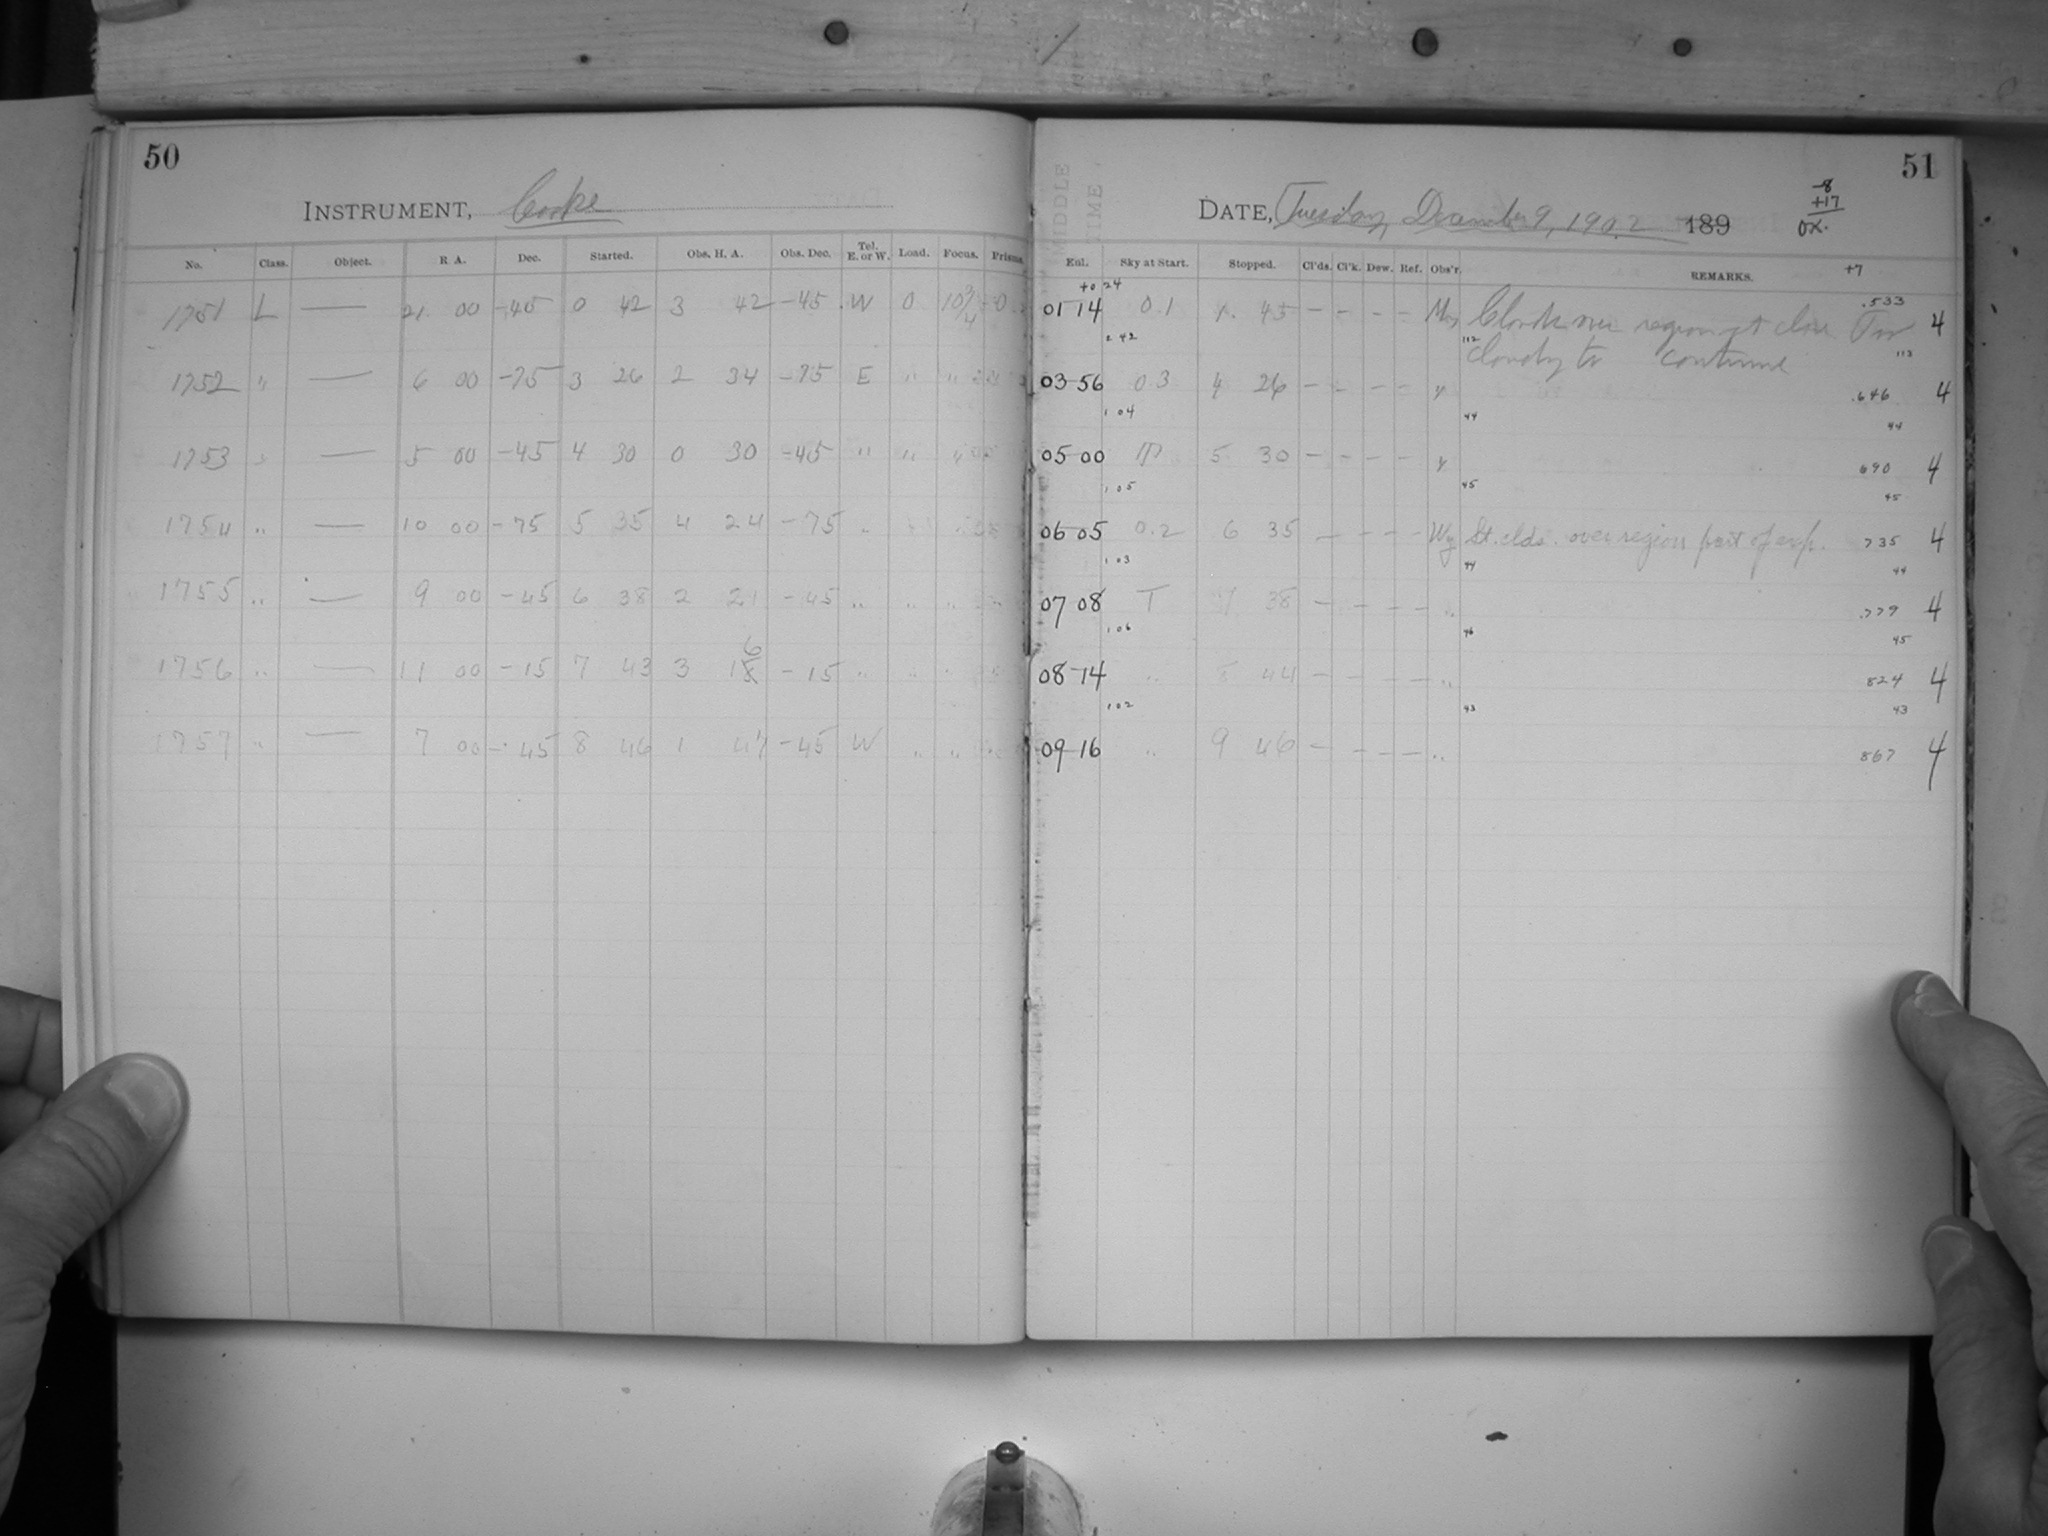 50
INSTRUMENT, Cooke
No. Class. Object. R A. Dec. Started. Obs. H. A. Obs. Dec. Tel. E. or W. Load. Focus. Prisms.
1751 L — 21 00 -45 0 42 3 42 -45 W 0 10 3/4 0
1752 " — 6 00 -75 3 26 2 34 -75 E " "
1753 " — 5 00 -45 4 30 0 30 -45 " " "
1754 " — 10 00 -75 5 35 4 24 -75 "
1755 " — 9 00 -45 6 38 2 21 -45 " " "
1756 " — 11 00 -15 7 43 3 16 -15 " " "
1757 " — 7 00 -45 8 46 1 47 -45 W " "
MIDDLE TIME
51
DATE, Tuesday, December 9, 1902 189
-8
+17
OX.
Exl. Sky at Start. Stopped. Cl'ds. Cl'k. Dew. Ref. Obs'r. REMARKS. +7
+0 24
01-14 0.1 1 45 - - - - Clouds over region at close Too .533 4
2 42 112 cloudy to continue 113
03-56 0.3 4 26 - - - - " .646 4
1 04 44 44
05-00 5 30 - - - - " 690 4
1 05 45 45
06-05 0.2 6 35 - - - - Wy St. clds. over region part of exp. 735 4
1 03 44 44
07-08 T 7 38 - - - - " .779 4
1 06 46 45
08-14 " 8 44 - - - - " 824 4
1 02 43 43
09-16 " 9 46 - - - - " 867 4